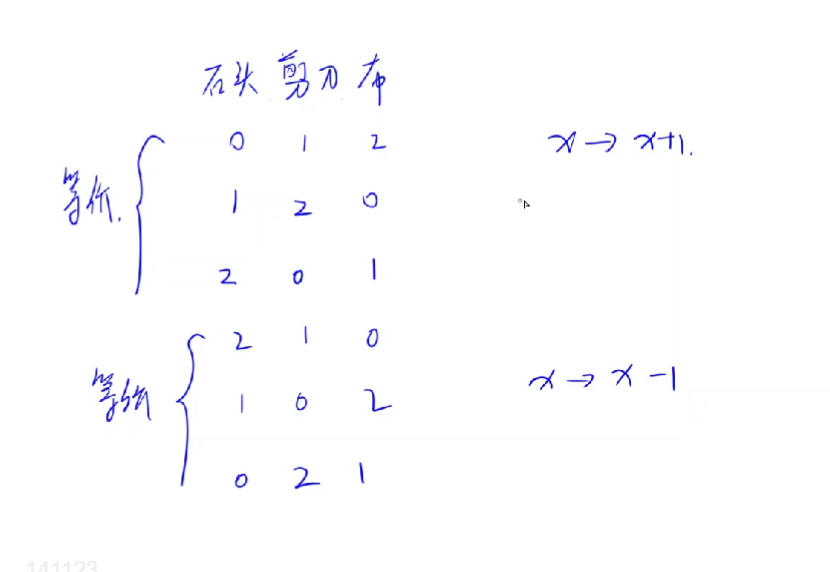 石头 剪刀 布
0 1 2 x → x+1.
等价.
1 2 0
2 0 1
2 1 0
等价
1 0 2 x → x -1
0 2 1
141123